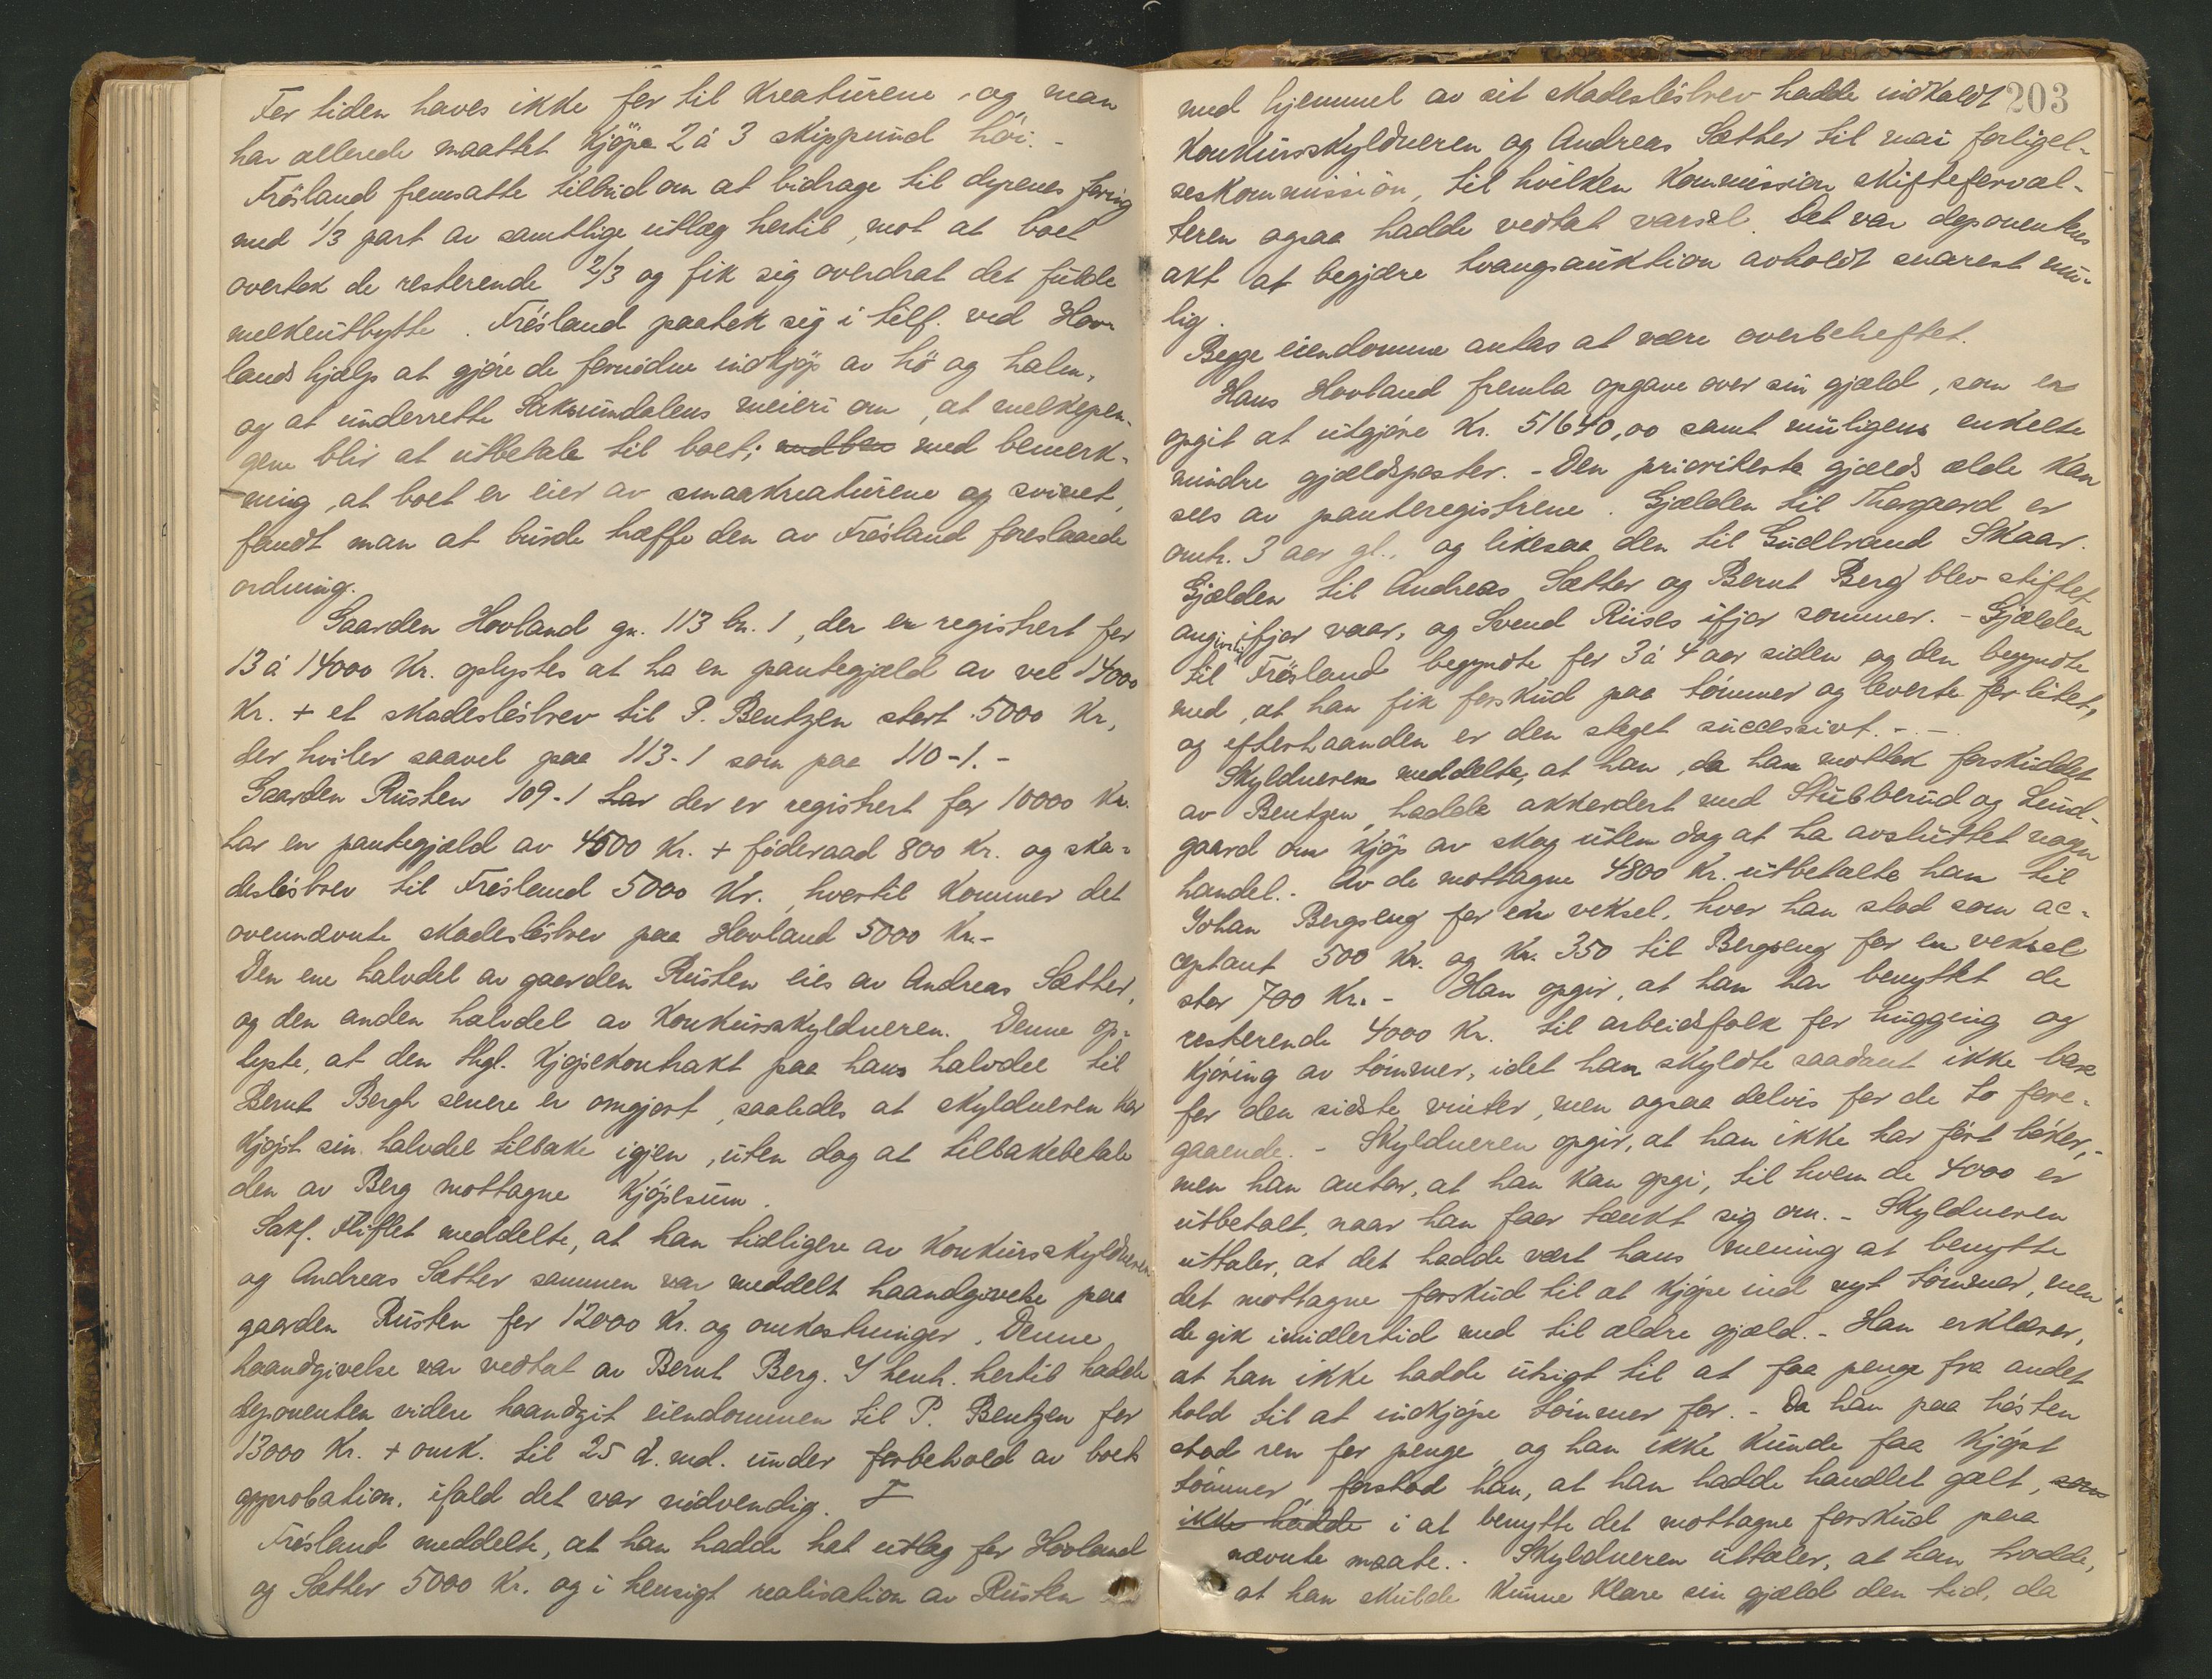 For tiden haves ikke for til kreaturene, og man
har allerede maattet kjöpe 2 á 3 skippund höi. -
Frösland fremsatte tilbud om at bidrage til dyrenes foring
med 1/3 part av samtlige utlæg hertil, mot at boet
overtok de resterende 2/3 og fik sig overdrat det fulde
melkeutbytte. Frösland paatok sig i tilf. ved Hov-
lands hjælp at gjöre de fornödne indkjöp av hö og halm,
og at underrette Soknedalens meieri om, at melkepen-
gene blir at utbetale til boet; med bemerk-
ning, at boet er eier av smaakreaturene og svinet,
fandt man at burde træffe den av Frösland foreslaaede
ordning.
Gaarden Hovland gn. 113 bn. 1, der er registrert for
13 á 14000 Kr. oplystes at ha en pantegjæld av vel 14000
Kr. + et skadeslösbrev til P. Bentzen stort 5000 Kr,
der hviler saavel paa 113-1 som paa 110-1. -
Gaarden Rusten 109-1 har der er registrert for 10000 Kr.
har en pantegjæld av 4500 Kr. + föderaad 800 Kr. og ska-
deslösbrev til Frösland 5000 Kr., hvortil kommer det
ovennævnte skadeslösbrev paa Hovland 5000 Kr. -
Den ene halvdel av gaarden Rusten eies av Andreas Sæther,
og den anden halvdel av konkursskyldneren. Denne op-
lyste, at den thgl. kjöpekontrakt paa hans halvdel til
Bernt Bergh senere er omgjort, saaledes at skyldneren har
kjöpt sin halvdel tilbake igjen, uten dog at tilbakebetale
den av Berg mottagne kjöpesum.
Sakf. Fliflet meddelte, at han tidligere av konkursskyldneren
og Andreas Sæther sammen var meddelt haandgivelse paa
gaarden Rusten for 12000 Kr. og omkostninger. Denne
haandgivelse var vedtat av Bernt Berg. I henh. hertil hadde
deponenten videre haandgit eiendommen til P. Bentzen for
13000 Kr. + omk. til 25 d. md. under forbehold av boets
approbation, ifald det var nödvendig.
Frösland meddelte, at han hadde hat utlæg for Hovland
og Sæther 5000 Kr. og i hensigt realisation av Rusten
203
med hjemmel av sit skadeslösbrev hadde indkaldt
konkursskyldneren og Andreas Sæther til mai forligel-
seskommission, til hvilken kommission skifteforval-
teren ogsaa hadde vedtat varsel. Det var deponentens
akt at begjære tvangsauktion avholdt snarest mu-
lig.
Begge eiendomme antas at være overbeheftet.
Hans Hovland fremla opgave over sin gjæld, som er
opgit at utgjöre Kr. 51640,00 samt muligens enkelte
mindre gjældsposter. - Den prioriterte gjælds ælde kan
sees av panteregistrene. Gjælden til Thorgaard er
omtr. 3 aar gl., og likesaa den til Gudbrand Skaar.
Gjælden til Andreas Sæther og Bernt Berg blev stiftet
angivelig ifjor vaar, og Svend Riises ifjor sommer. - Gjælden
til Frösland begyndte for 3 á 4 aar siden og den begyndte
med, at han fik forskud paa tömmer og leverte for litet,
og efterhaanden er den steget successivt. -
Skyldneren meddelte, at han, da han mottok forskuddet
av Bentzen, hadde akkordert med Stubberud og Lund-
gaard om kjöp av skog uten dog at ha avsluttet nogen
handel. - Av de mottagne 4800 Kr. utbetalte han til
Johan Bergseng for en veksel, hvor han stod som ac-
ceptant 500 Kr. og Kr. 350 til Bergseng for en veksel
stor 700 Kr. - Han opgir, at han har benyttet de
resterende 4000 Kr. til arbeidsfolk for hugging og
kjöring av tömmer, idet han skyldte saadant ikke bare
for den sidste vinter, men ogsaa delvis for de to fore-
gaaende. - Skyldneren opgir, at han ikke har fört böker, -
men han antar, at han kan opgi, til hvem de 4000 er
utbetalt, naar han faar tænkt sig om. - Skyldneren
uttaler, at det hadde vært hans mening at benytte
det mottagne forskud til at kjöpe ind nyt tömmer, men
de gik imidlertid med til ældre gjæld. - Han erklærer,
at han ikke hadde utsigt til at faa penge fra andet
hold til at indkjöpe tömmer for. - Da han paa hösten
stod ren for penge, og han ikke kunde faa kjöpt
tömmer forstod han, at han hadde handlet galt, som
ikke hadde i at benytte det mottagne forskud paa
nævnte maate. - Skyldneren uttaler, at han trodde,
at han skulde kunne klare sin gjæld den tid, da